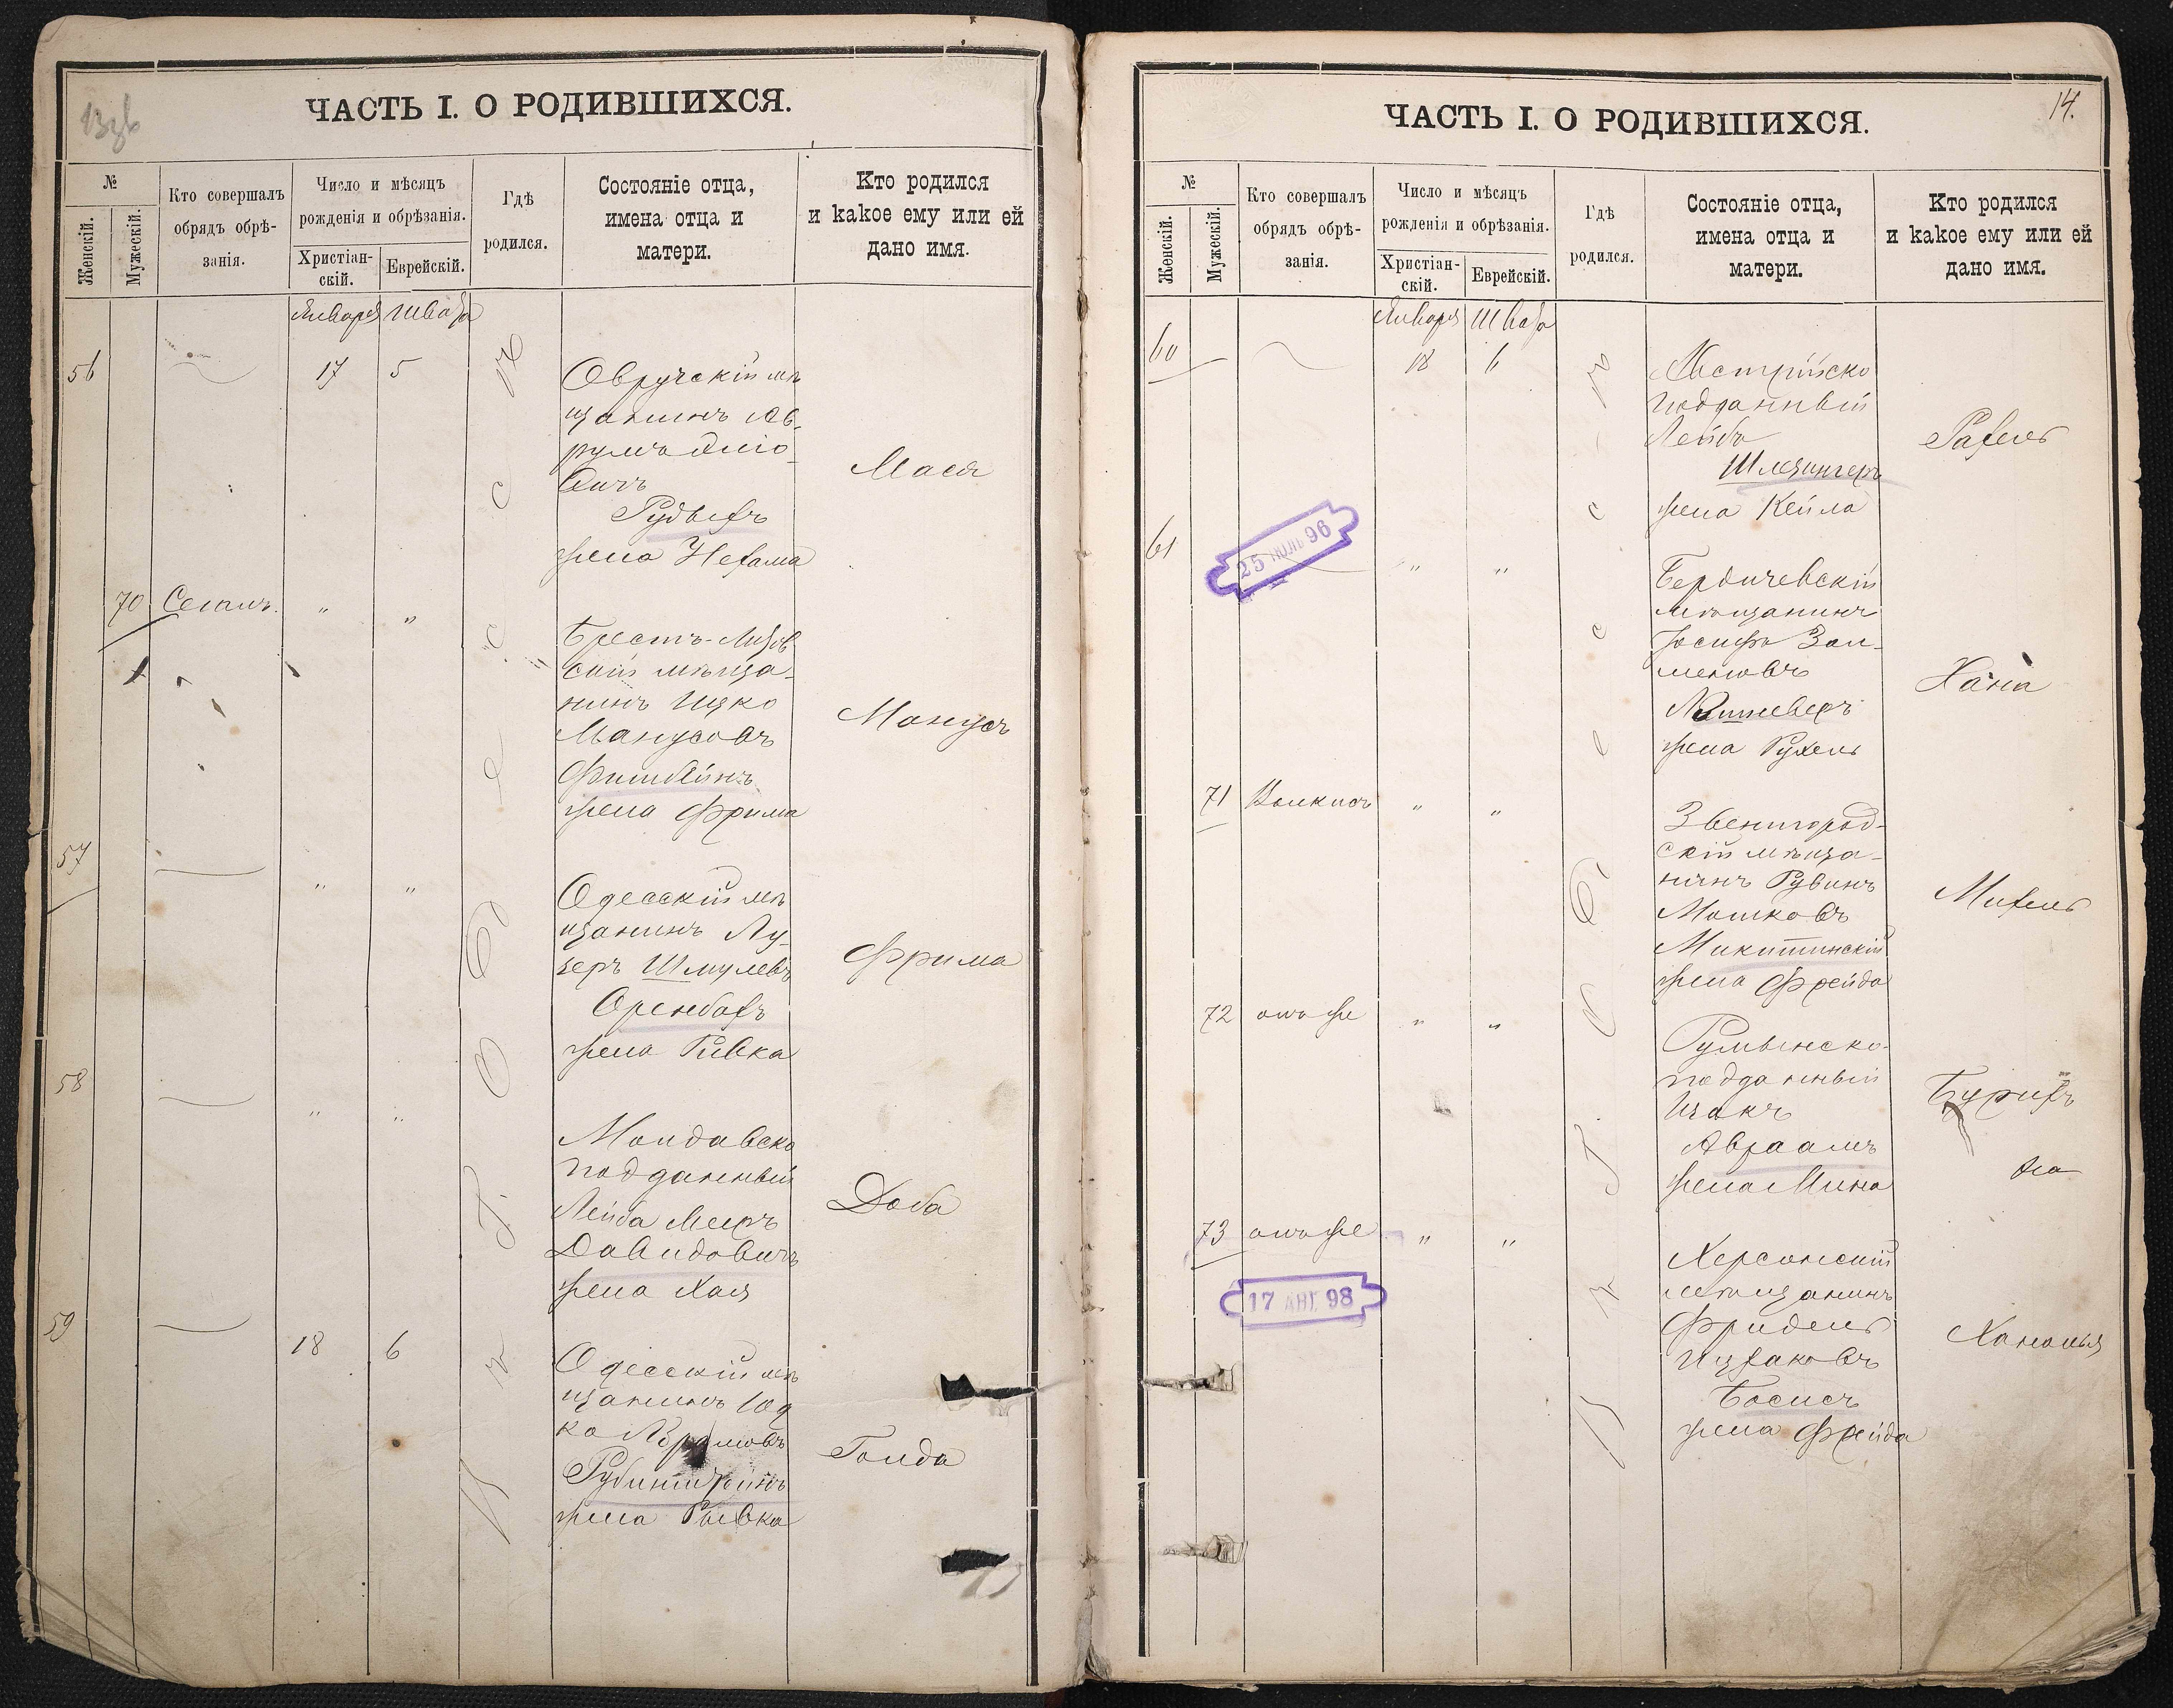 13 зв
ЧАСТЬ I. О РОДИВШИХСЯ.
№
Женскій.
Мужескій.
Кто совершалъ
обрядъ обрѣ-
занія.
Число и мѣсяцъ
рожденія и обрѣзанія.
Христіан-
скій.
Еврейскій.
Гдѣ
родился.
Состояніе отца,
имена отца и
матери.
Кто родился
и какое ему или ей
дано имя.
Января Швата
56 17 5
Овручскій мѣ
щанинъ Ав-
румъ
Рудыхъ
жена Нехама
Мася
70 Сегалъ " "
Брестъ-Литов
скій мѣща-
нинъ Ицко
Манусовъ
Фишбейнъ
жена Фрима
Манусъ
57 " "
Одесскій мѣ
щанинъ Лу-
зеръ Шмулевъ
Оренбахъ
жена Ривка
Фрима
58 " "
Молдавско
подданный
Лейба Мееръ
Давидовичъ
жена Хая
Доба
59 18 6
Одесскій мѣ
щанинъ Юд
ко Абрамовъ
Рубинштейнъ
жена Рывка
Голда
въ г. Одессѣ
14.
ЧАСТЬ I. О РОДИВШИХСЯ.
№
Женскій.
Мужескій.
Кто совершалъ
обрядъ обрѣ-
занія.
Число и мѣсяцъ
рожденія и обрѣзанія.
Христіан-
скій.
Еврейскій.
Гдѣ
родился.
Состояніе отца,
имена отца и
матери.
Кто родился
и какое ему или ей
дано имя.
Января Швата
60 18 6
Австрійско
подданный
Лейба
Шлезингеръ
жена Кейла
Рахель
61 " "
25 ІЮЛЬ 96
Бердичевскій
мѣщанинъ
Іосифъ Зал-
мановъ
жена Рухель
Хана
71 Волкисъ " "
Звенигород-
скій мѣща-
нинъ Рувинъ
Мошковъ
Микитинскій
жена Фрейда
Михель
72 тотъ же " "
Румынско-
подданный
Исакъ
Авраамъ
жена Мина
Бурихъ
73 тотъ же " "
17 АВГ. 98
Херсонскій
мѣщанинъ
Фридель
Ицхаковъ
Босисъ
жена Фрейда
Хананья
въ г. Одессѣ